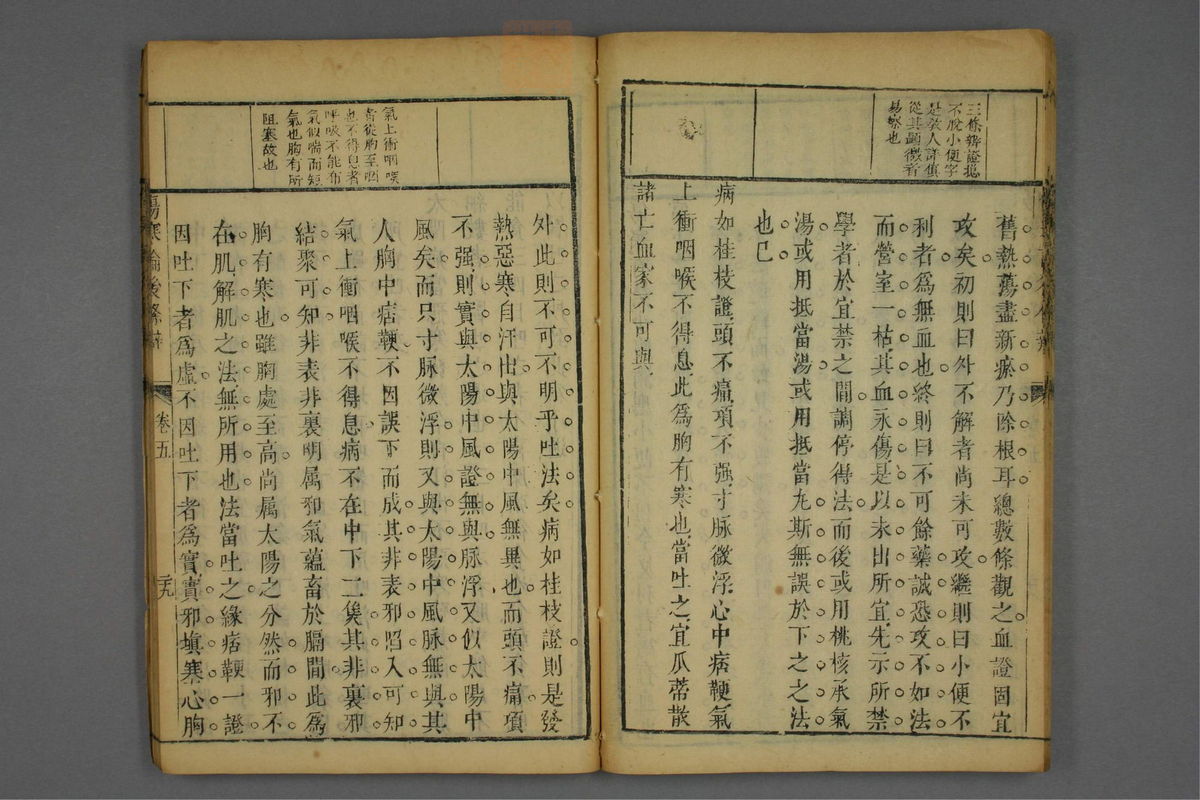 三條辨證總
不脫小便字
是教人詳慎
從其顯微者
易察也
舊熱蕩盡新瘀乃除根耳總數條觀之血證固宜
攻矣初則曰外不解者尚未可攻繼則曰小便不
利者爲無血也終則曰不可餘藥誠恐攻不如法
而營室一枯其血永傷是以未出所宜先示所禁
學者於宜禁之間調停得法而後或用桃核承氣
湯或用抵當湯或用抵當丸斯無誤於下之之法
也已
病如桂枝證頭不痛項不强寸脉微浮心中痞鞕氣
上衝咽喉不得息此爲胸有寒也當吐之宜瓜蒂散
諸亡血家不可與
氣上衝咽喉
者從胸至咽
也不得息者
呼吸不能布
氣似喘而短
氣也胸有所
阻塞故也
外此則不可不明乎吐法矣病如桂枝證則是發
熱惡寒自汗出與太陽中風無異也而頭不痛項
不强則實與太陽中風證無與脉浮又似太陽中
風矣而只寸脉微浮則又與太陽中風脉無與其
人胸中痞鞕不因誤下而成其非表邪陷入可知
氣上衝咽喉不得息病不在中下二焦其非裏邪
結聚可知非表非裏明属邪氣蘊畜於膈間此爲
胸有寒也雖胸處至高尚属太陽之分然而邪不
在肌解肌之法無所用也法當吐之緣痞鞕一證
因吐下者爲虛不因吐下者爲實實邪填塞心胸
傷寒論後條辨
卷五
二九